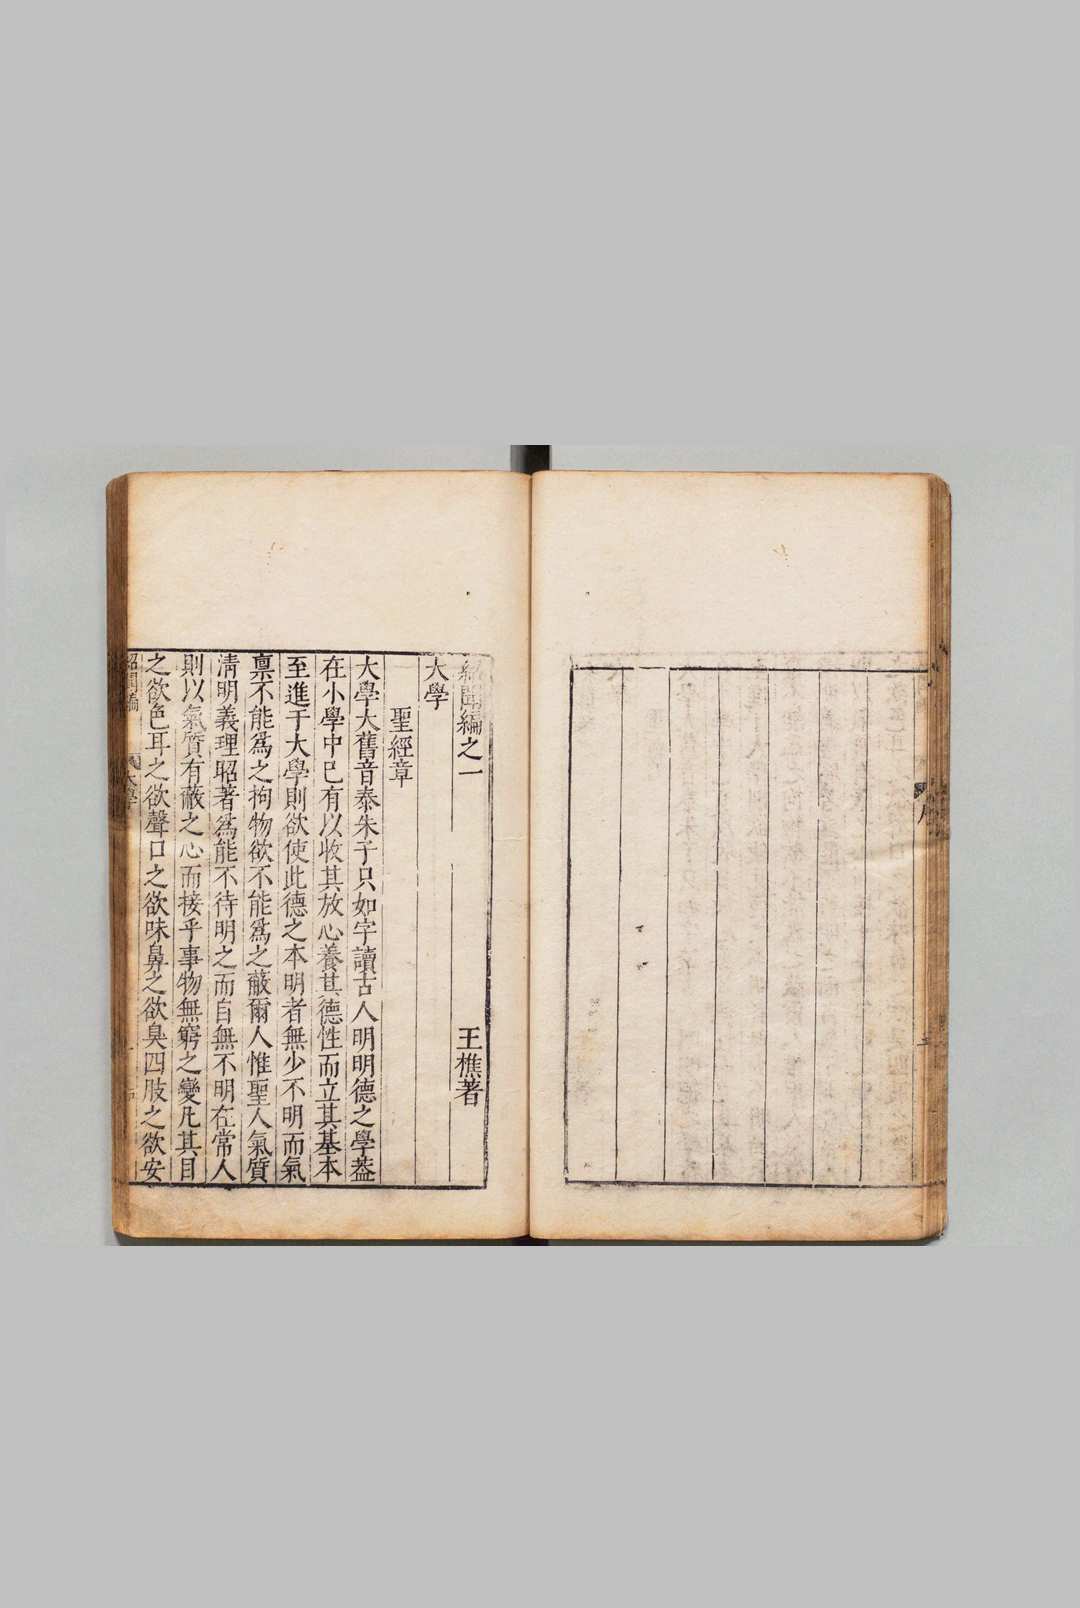 序
紹聞編之一 王樵著
大學
聖經章
大學大舊音泰朱子只如字讀古人明明德之學葢
在小學中已有以收其放心養其德性而立其基本
至進于大學則欲使此德之本明者無少不明而氣
禀不能爲之拘物欲不能爲之蔽爾人惟聖人氣質
清明義理昭著爲能不待明之而自無不明在常人
則以氣質有蔽之心而接乎事物無窮之變凡其目
之欲色耳之欲聲口之欲味鼻之欲臭四肢之欲安
紹聞編 大學 一